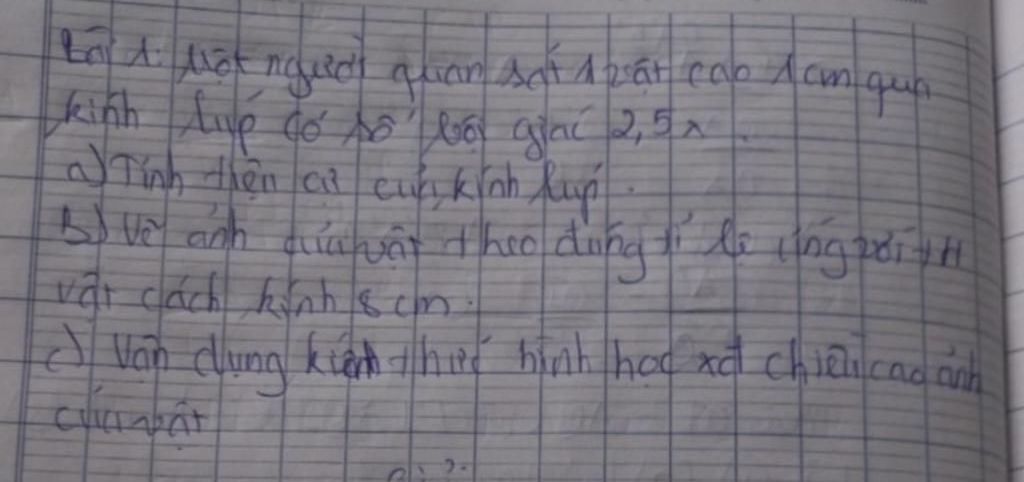 Bài 1: Một người quan sát 1 vật cao 1cm qua
kính lúp có số bội giác 2,5x.
a) Tính tiên cự của kính lúp.
b) Vẽ ảnh của vật theo đúng tỉ lệ ứng với TH
vật cách kính 8cm.
c) Vận dụng kiến thức hình học xđ chiều cao ảnh
của vật